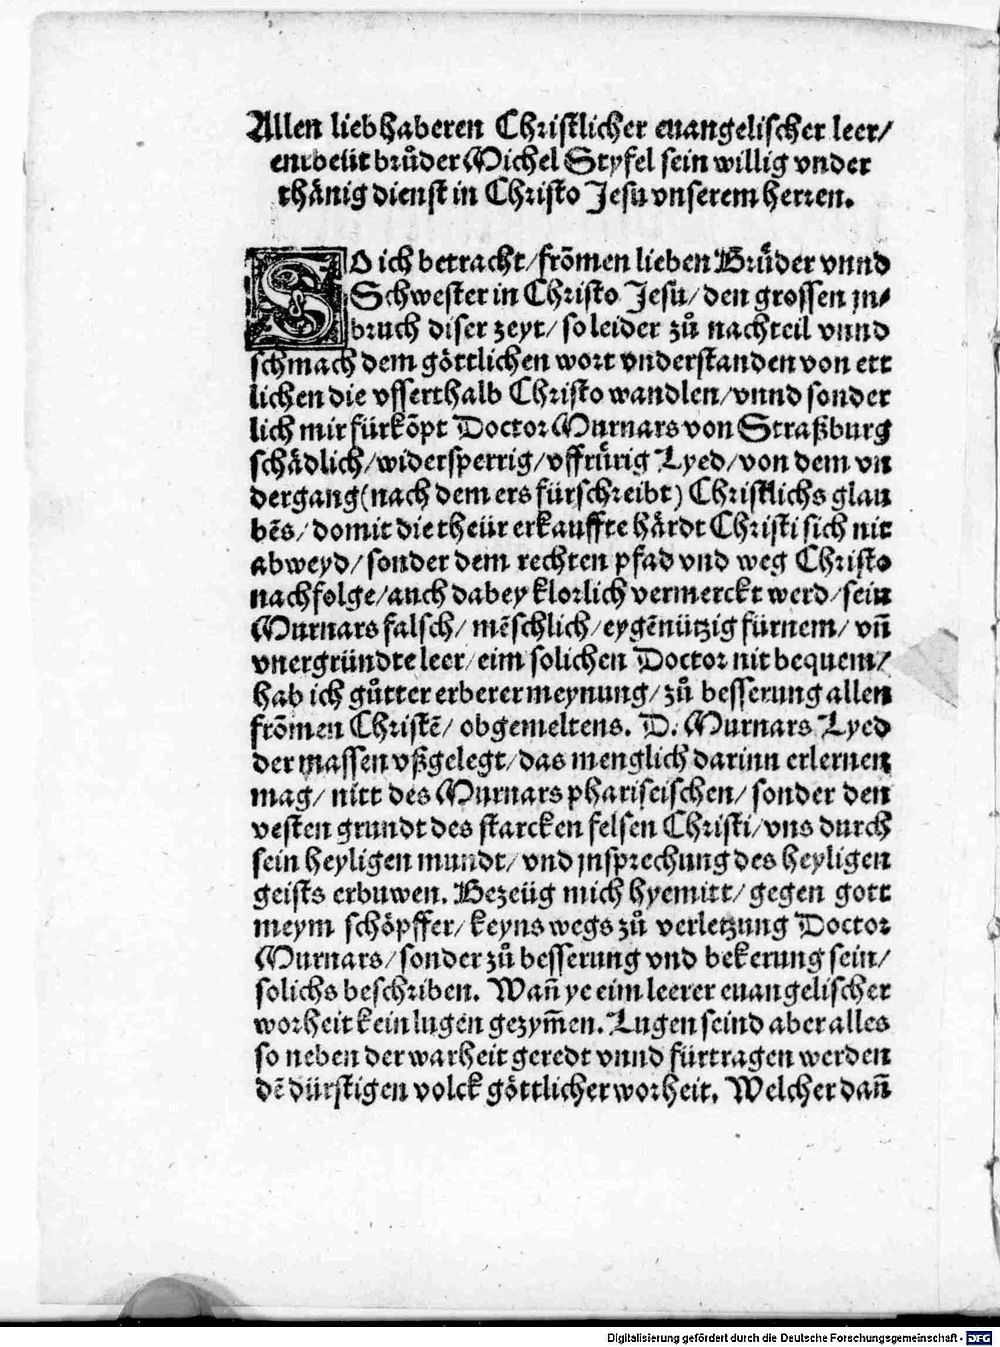 Allen liebhaberen Christlicher euangelischer leer/
embeüt brůder Michel Styfel sein willig vnder
thånig dienst in Christo Jesu vnserem herren.
SO ich betracht/ frõmen lieben Brůder vnnd
Schwester in Christo Jesu/ den grossen jn⸗
bruch diser zeyt/ so leider zů nachteil vnnd
schmach dem göttlichen wort vnderstanden von ett
lichen die vsserthalb Christo wandlen/ vnnd sonder
lich mir fürkõpt Doctor Murnars von Straßburg
schådlich/ widersperrig/ vffrürig Lyed/ von dem vn
dergang (nach dem ers fürschreibt) Christlichs glau
bẽs/ domit die theür erkauffte hårdt Christi sich nit
abweyd/ sonder dem rechten pfad vnd weg Christo
nachfolge/ auch dabey klorlich vermerckt werd/ sein
Murnars falsch/ mẽschlich/ eygẽnützig fürnem/ vñ
vnergründte leer/ eim solichen Doctor nit bequem/
hab ich gůtter erberer meynung/ zů besserung allen
frõmen Christẽ/ obgemeltens. D. Murnars Lyed
der massen vßgelegt/ das menglich darinn erlernen
mag/ nitt des Murnars phariseischen/ sonder den
vesten grundt des starcken felsen Christi/ vns durch
sein heyligen mundt/ vnd jnsprechung des heyligen
geists erbuwen. Bezeüg mich hyemitt/ gegen gott
meym schöpffer/ keyns wegs zů verletzung Doctor
Murnars/ sonder zů besserung vnd bekerung sein/
solichs beschriben. Wañ ye eim leerer euangelischer
worheit kein lugen gezym̃en. Lugen seind aber alles
so neben der warheit geredt vnnd fürtragen werden
dẽ dürstigen volck göttlicher worheit. Welcher dañ
Digitalisierung gefördert durch die Deutsche Forschungsgemeinschaft - DFG